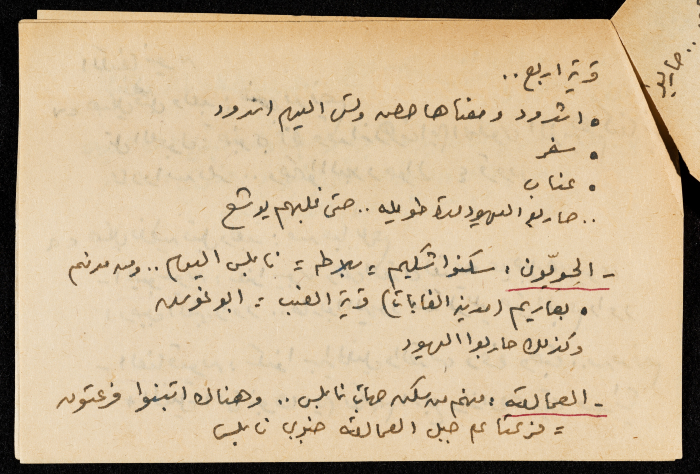 قرية اربع ..
• اشدود ومعناها حصن وتسمى اليوم اسدود
• سفر
• عناب
.. حاربو اليهود مدة طويله .. حتى غلبهم يوشع
- الحويّون : سكنوا شكيم = بلاطه = نابلس اليوم .. ومن مدنهم
• بعاريم (مدينة الغابات) قرية العنب = ابو غوش
وكذلك حاربوا اليهود
- العمالقة : منهم من سكن جهات نابلس .. وهناك ابتنوا فرعتون
= فرعتا على جبل العمالقه جنوبي نابلس
.. حاربو